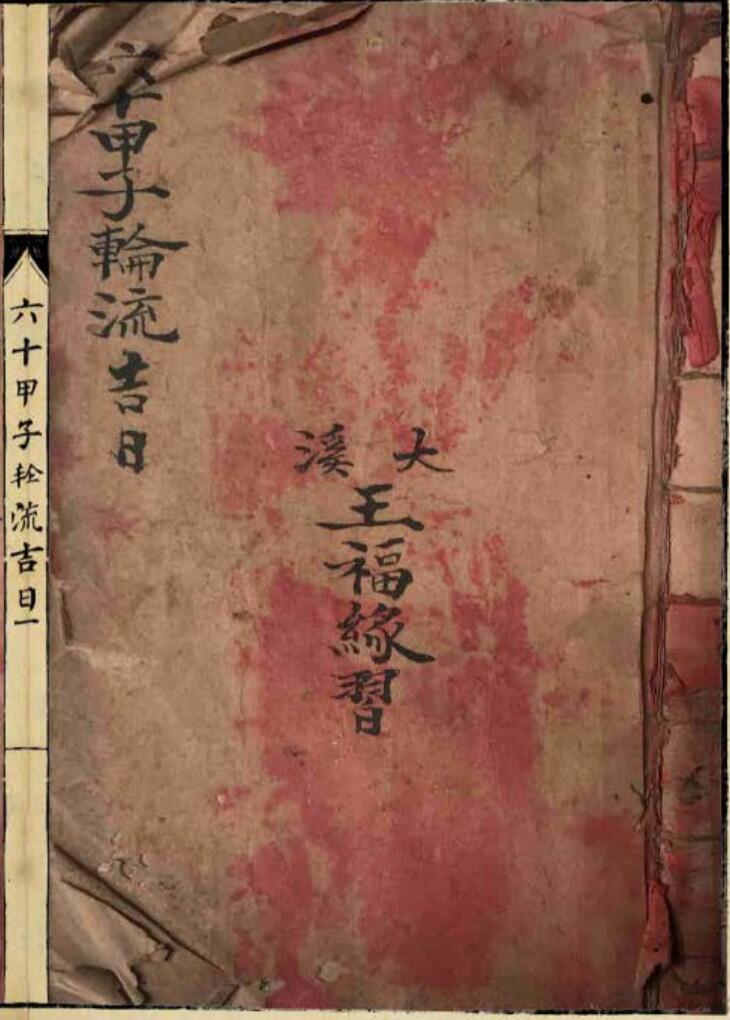 大溪
王福緣習
六十甲子輪流吉日
六十甲子轮流吉日一